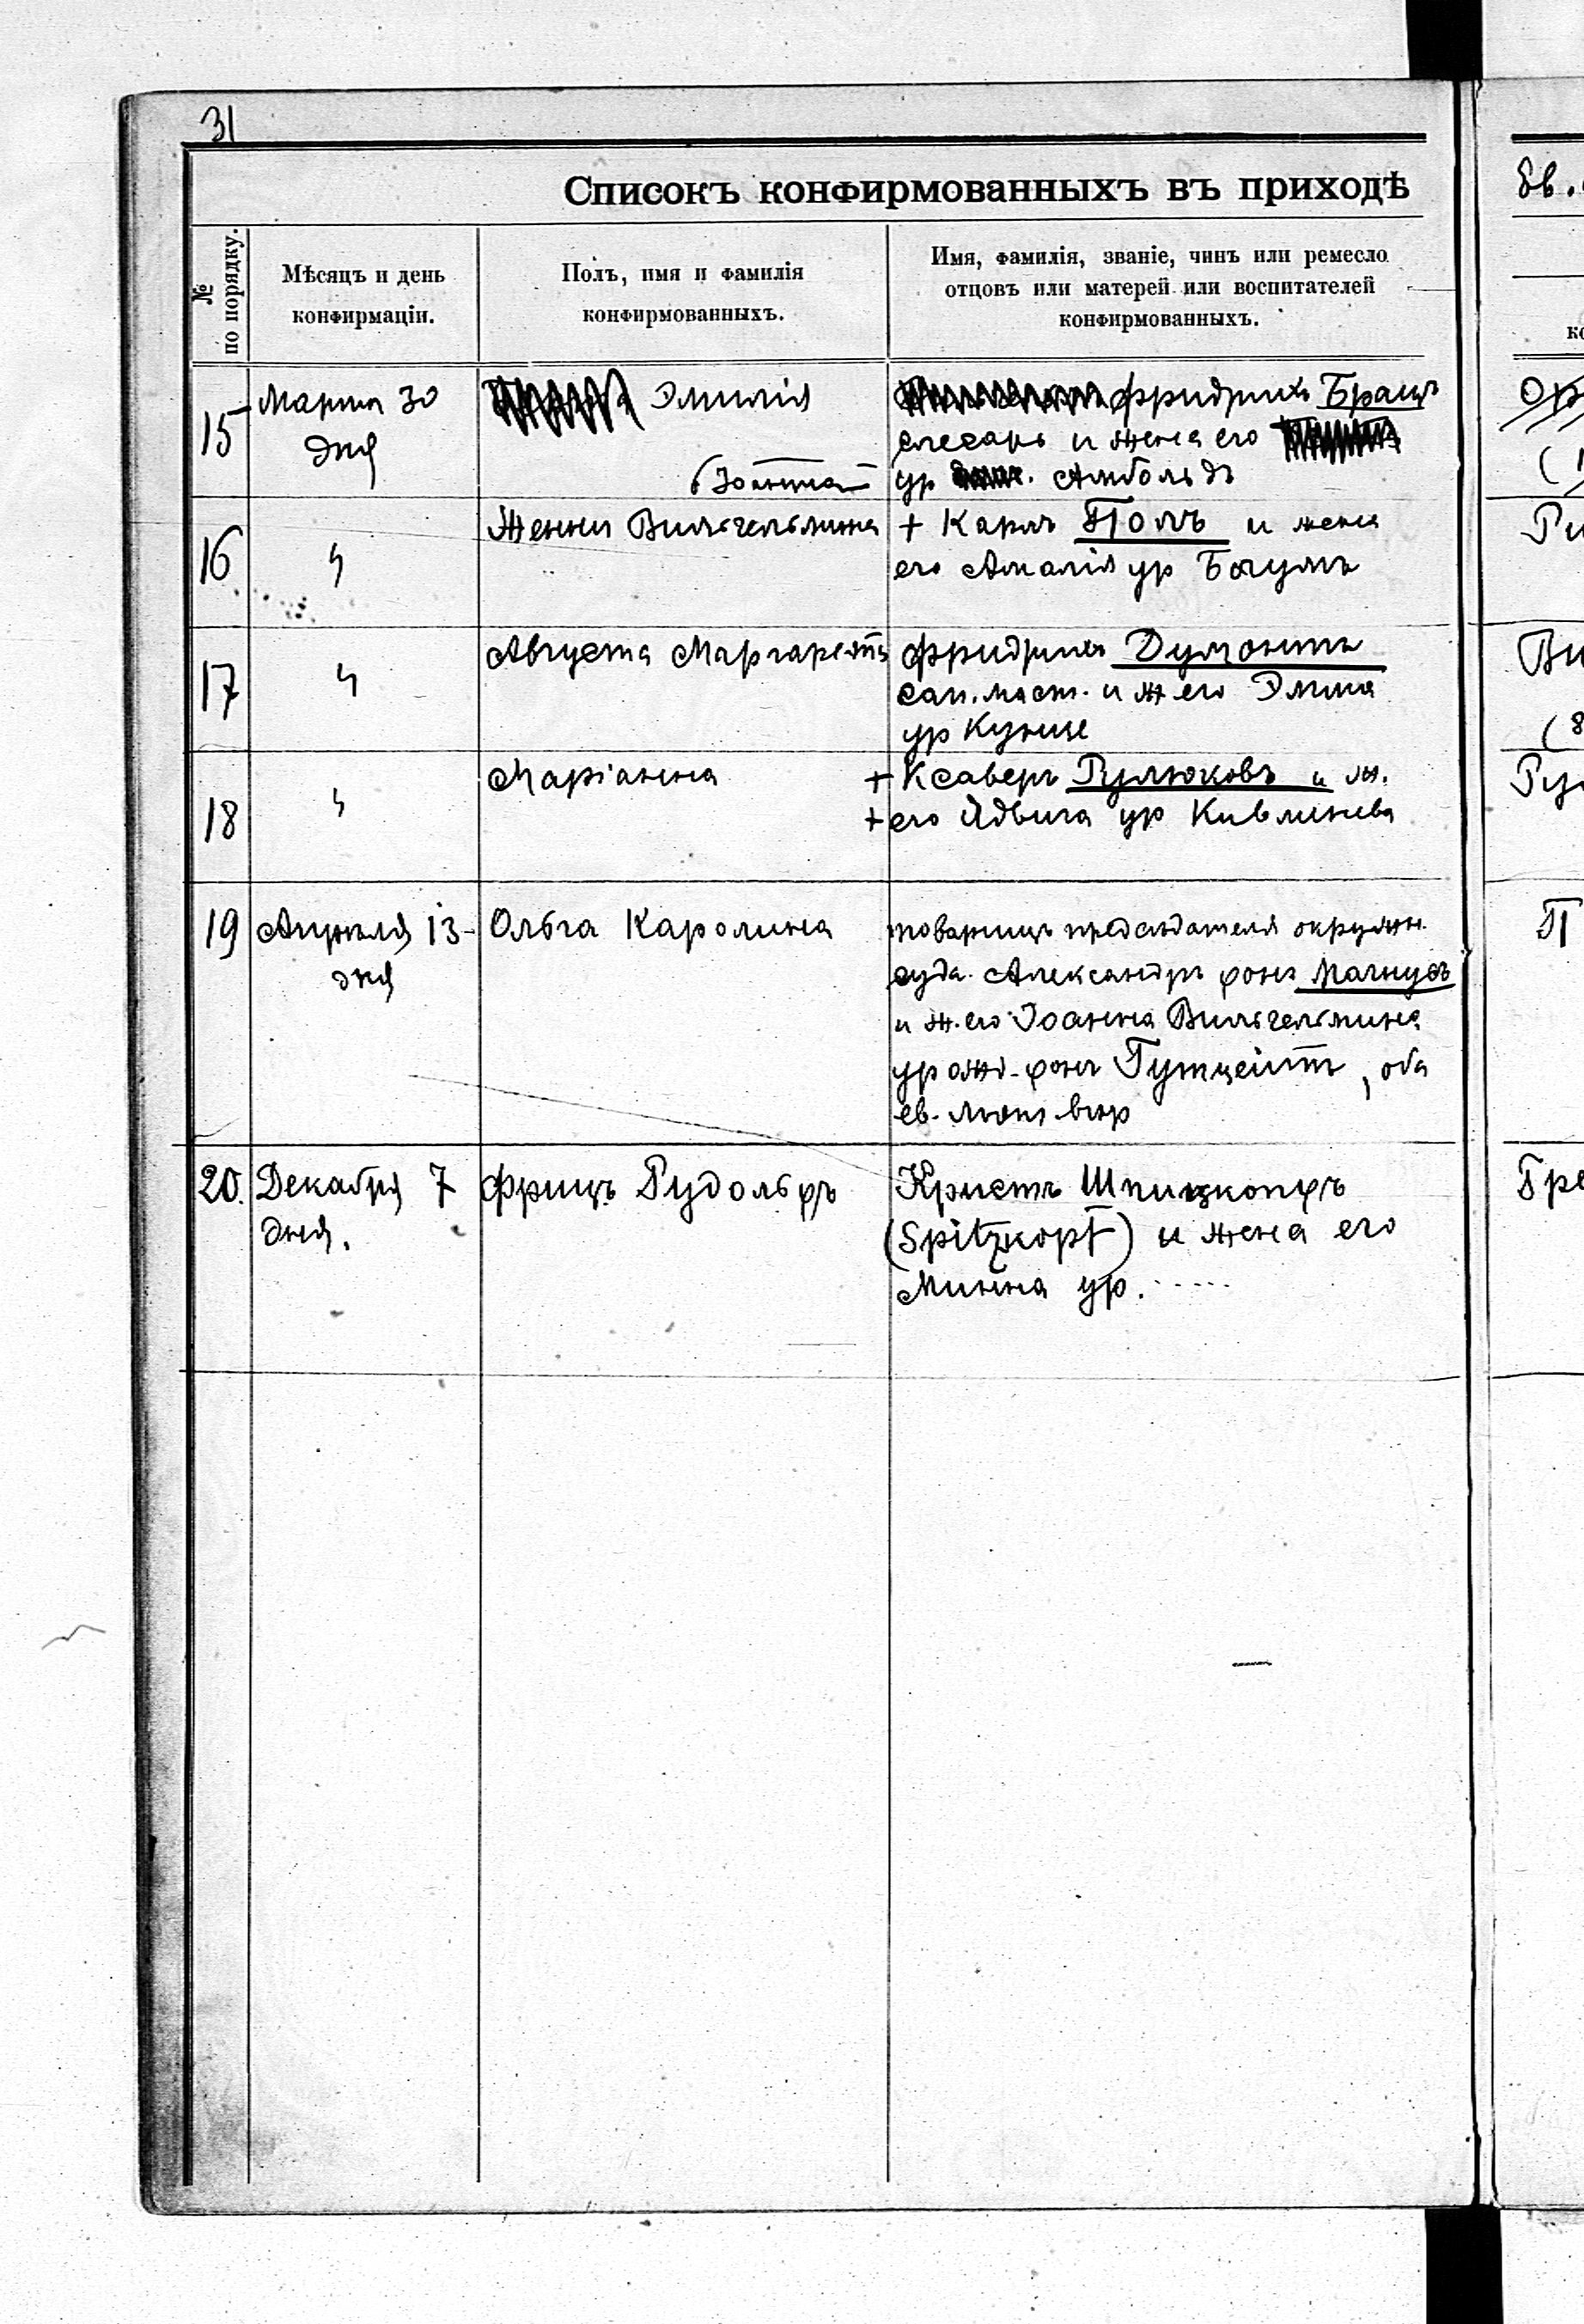 31
Списокъ конфирмованныхъ въ приходѣ
№ по порядку.
Мѣсяцъ и день
конфирмаціи.
Полъ, имя и фамилія
конфирмованныхъ.
Имя, фамилія, званіе, чинъ или ремесло
отцовъ или матерей или воспитателей
конфирмованныхъ.
15
Марта 30
дня
Эмилія
Фридрихъ Брацъ
слесарь и жена его
ур Амбольдъ
16
"
Женни Вильгельмина
+ Карлъ Полъ и жена
его Амалія ур Блумъ
17
"
Августа Маргарета
Фридрихъ Думонтъ
сап. маст. и ж его Эмма
ур Кунце
18
"
Маріанна
+ Ксаверъ Гулюковъ и ж.
+ его Ядвига ур
19
Апрѣля 13-
дня
Ольга Каролина
товарищъ предсѣдателя окружн.
суда Александръ фонъ Магнусъ
и ж. его Іоанна Вильгельмина
урожд. фонъ Гутцейтъ, оба
ев. лют. вѣр
20.
Декабря 7
дня.
Фрицъ Рудольфъ
Кристъ Шпицкопфъ
(Spitzkopf) и жена его
Минна ур. .....
Ев.
(1
Ри
Ви
(8
Ру
П
Гре